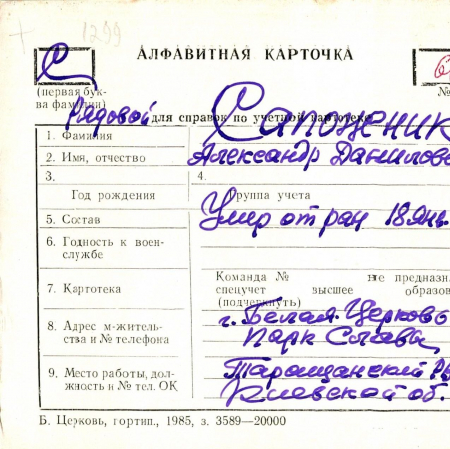 1299
АЛФАВИТНАЯ КАРТОЧКА
С
(первая бук-
ва фамилии)
№
Рядовой
для справок по учетной картотеке
Сапожник
1. Фамилия
2. Имя, отчество Александр Данилов
3. 4.
Год рождения Группа учета
5. Состав Умер от ран 18 янв.
6. Годность к воен-
службе
Команда № не предназн
7. Картотека спецучет высшее образов
(подчеркнуть)
8. Адрес м-житель- г. Белая Церковь
ства и № телефона Парк Славы
9. Место работы, дол- Таращанский
жность и № тел. ОК Киевской об.
Б. Церковь, гортип., 1985, з. 3589—20000